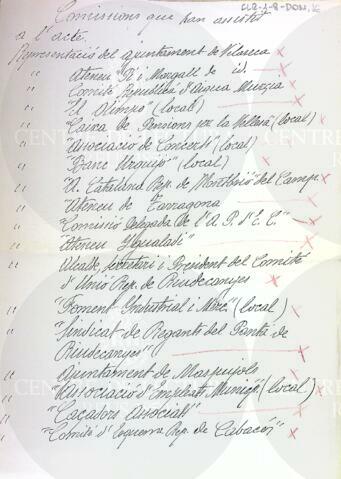 CLR-1-8-DON.1C
Comissions que han assistit
a l'acte.
Representació del ajuntament de Vilaseca x
" Ateneu "Pi i Margall de id. x
" Comité Republicà d'Aigua x
" "El Olimpo" (local) x
" "Caixa de Pensions per la Vellesa" (local) x
" Associació de Concerts (local) x
" "Banc Urquijo" (local) x
" "A. Catalana Rep. de Montbrió" del Camp. x
" "Ateneu de Tarragona x
" "Comissió Delegada de l'A. P. d'E. C." x
" "Ateneu Igualadí" x
" Alcalde, secretari i President del Comité
d'Unió Rep. de Riudecanyes x
" "Foment Industrial i Merc." (local) x
" "Sindicat de Regants del Pantà de
Riudecanyes" x
" Ajuntament de Maspujols x
" "Associació d'Empleats Municip. (local) x
" "Caçadors Associats" x
" "Comité d'Esquerra Rep. de Cabacés" x